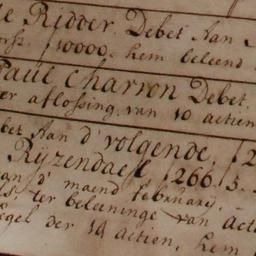 de Ridder Debet Aan
10000. hem beleend
Paul Charron Debet,
er aflossing van 10 actien
bet Aan d' volgende.
Rÿzendael 1266.
an d' maend februarij.
ter beleeninge van acti
der 10 actien, hem